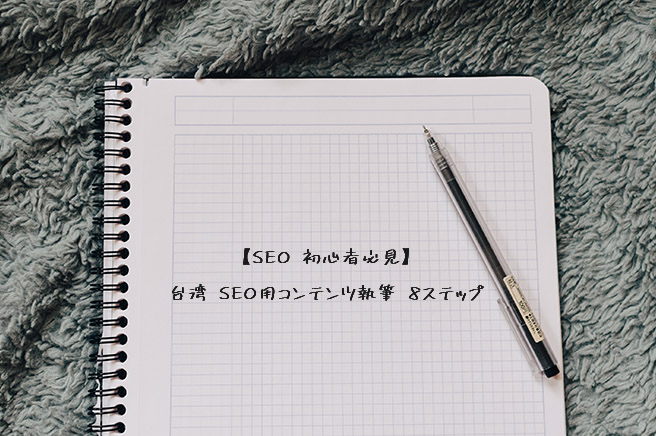 【SEO 初心者必見】
台湾 SEO用コンテンツ執筆 8ステップ